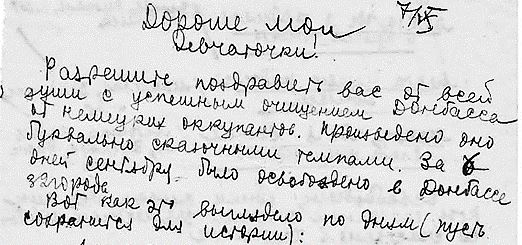 Дороше мои 7/IX
Девчаточки!
Разрешите поздравить вас от всей
души с успешным очищением Донбасса
от немецких оккупантов. Произведено оно
буквально сказочными темпами. За 6
дней сентября было освобождено в Донбассе
города
Вот как это выглядело по дням (пусть
сохранится для истории):